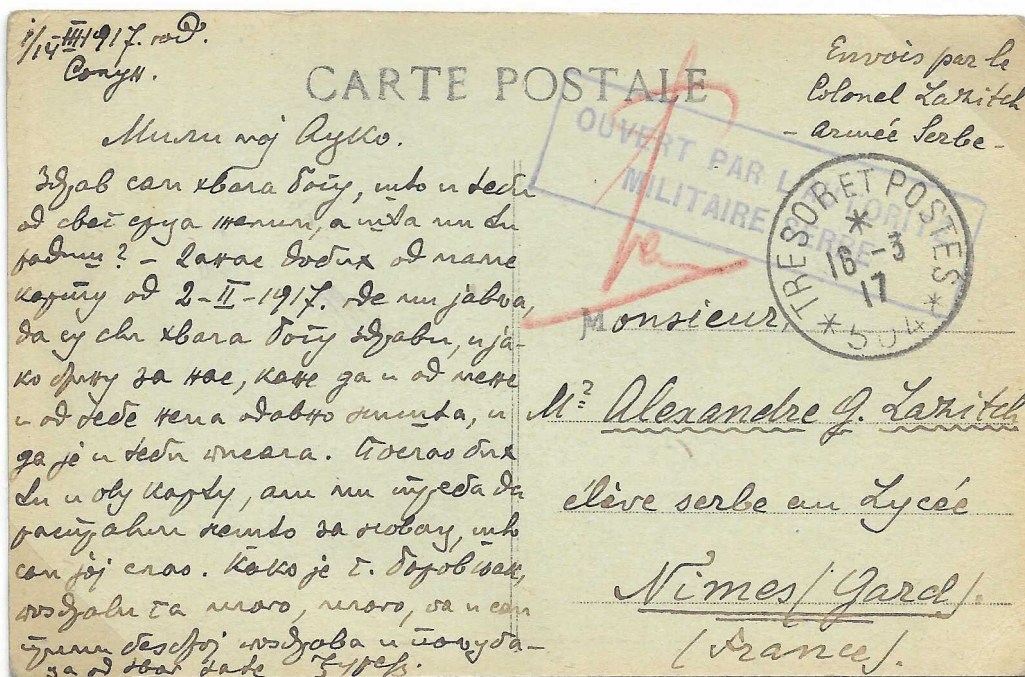 1/14-III-1917. год.
Солун.
Envois par le
Colonel Lazitch
- armée Serbe -
CARTE POSTALE
OUVERT PAR L'AUTORITÉ
MILITAIRE SERBE
TRESOR ET POSTES
16 -3
17
* 504 *
Мили мој Ацко.
Здрав сам хвала богу, што и теби
од свег срца желим, а шта ми ти
радиш? - Данас добих од маме
карту од 2-II-1917. где ми јавља,
да су сви хвала богу здрави, и ја-
ко брину за нас, каже да и од мене
и од тебе нема одавно ништа, и
да је и теби писала. Послао бих
ти и ову карту, али ми треба да
расправим нешто за новац, што
сам јој слао. Како је г. Боровњак,
поздрави га много, много, па и сам
прими безброј поздрава и пољуба-
ца од твог тате
Monsieur,
Mr Alexandre G. Lazitch
élève serbe au Lycée
Nîmes (Gard).
(France).